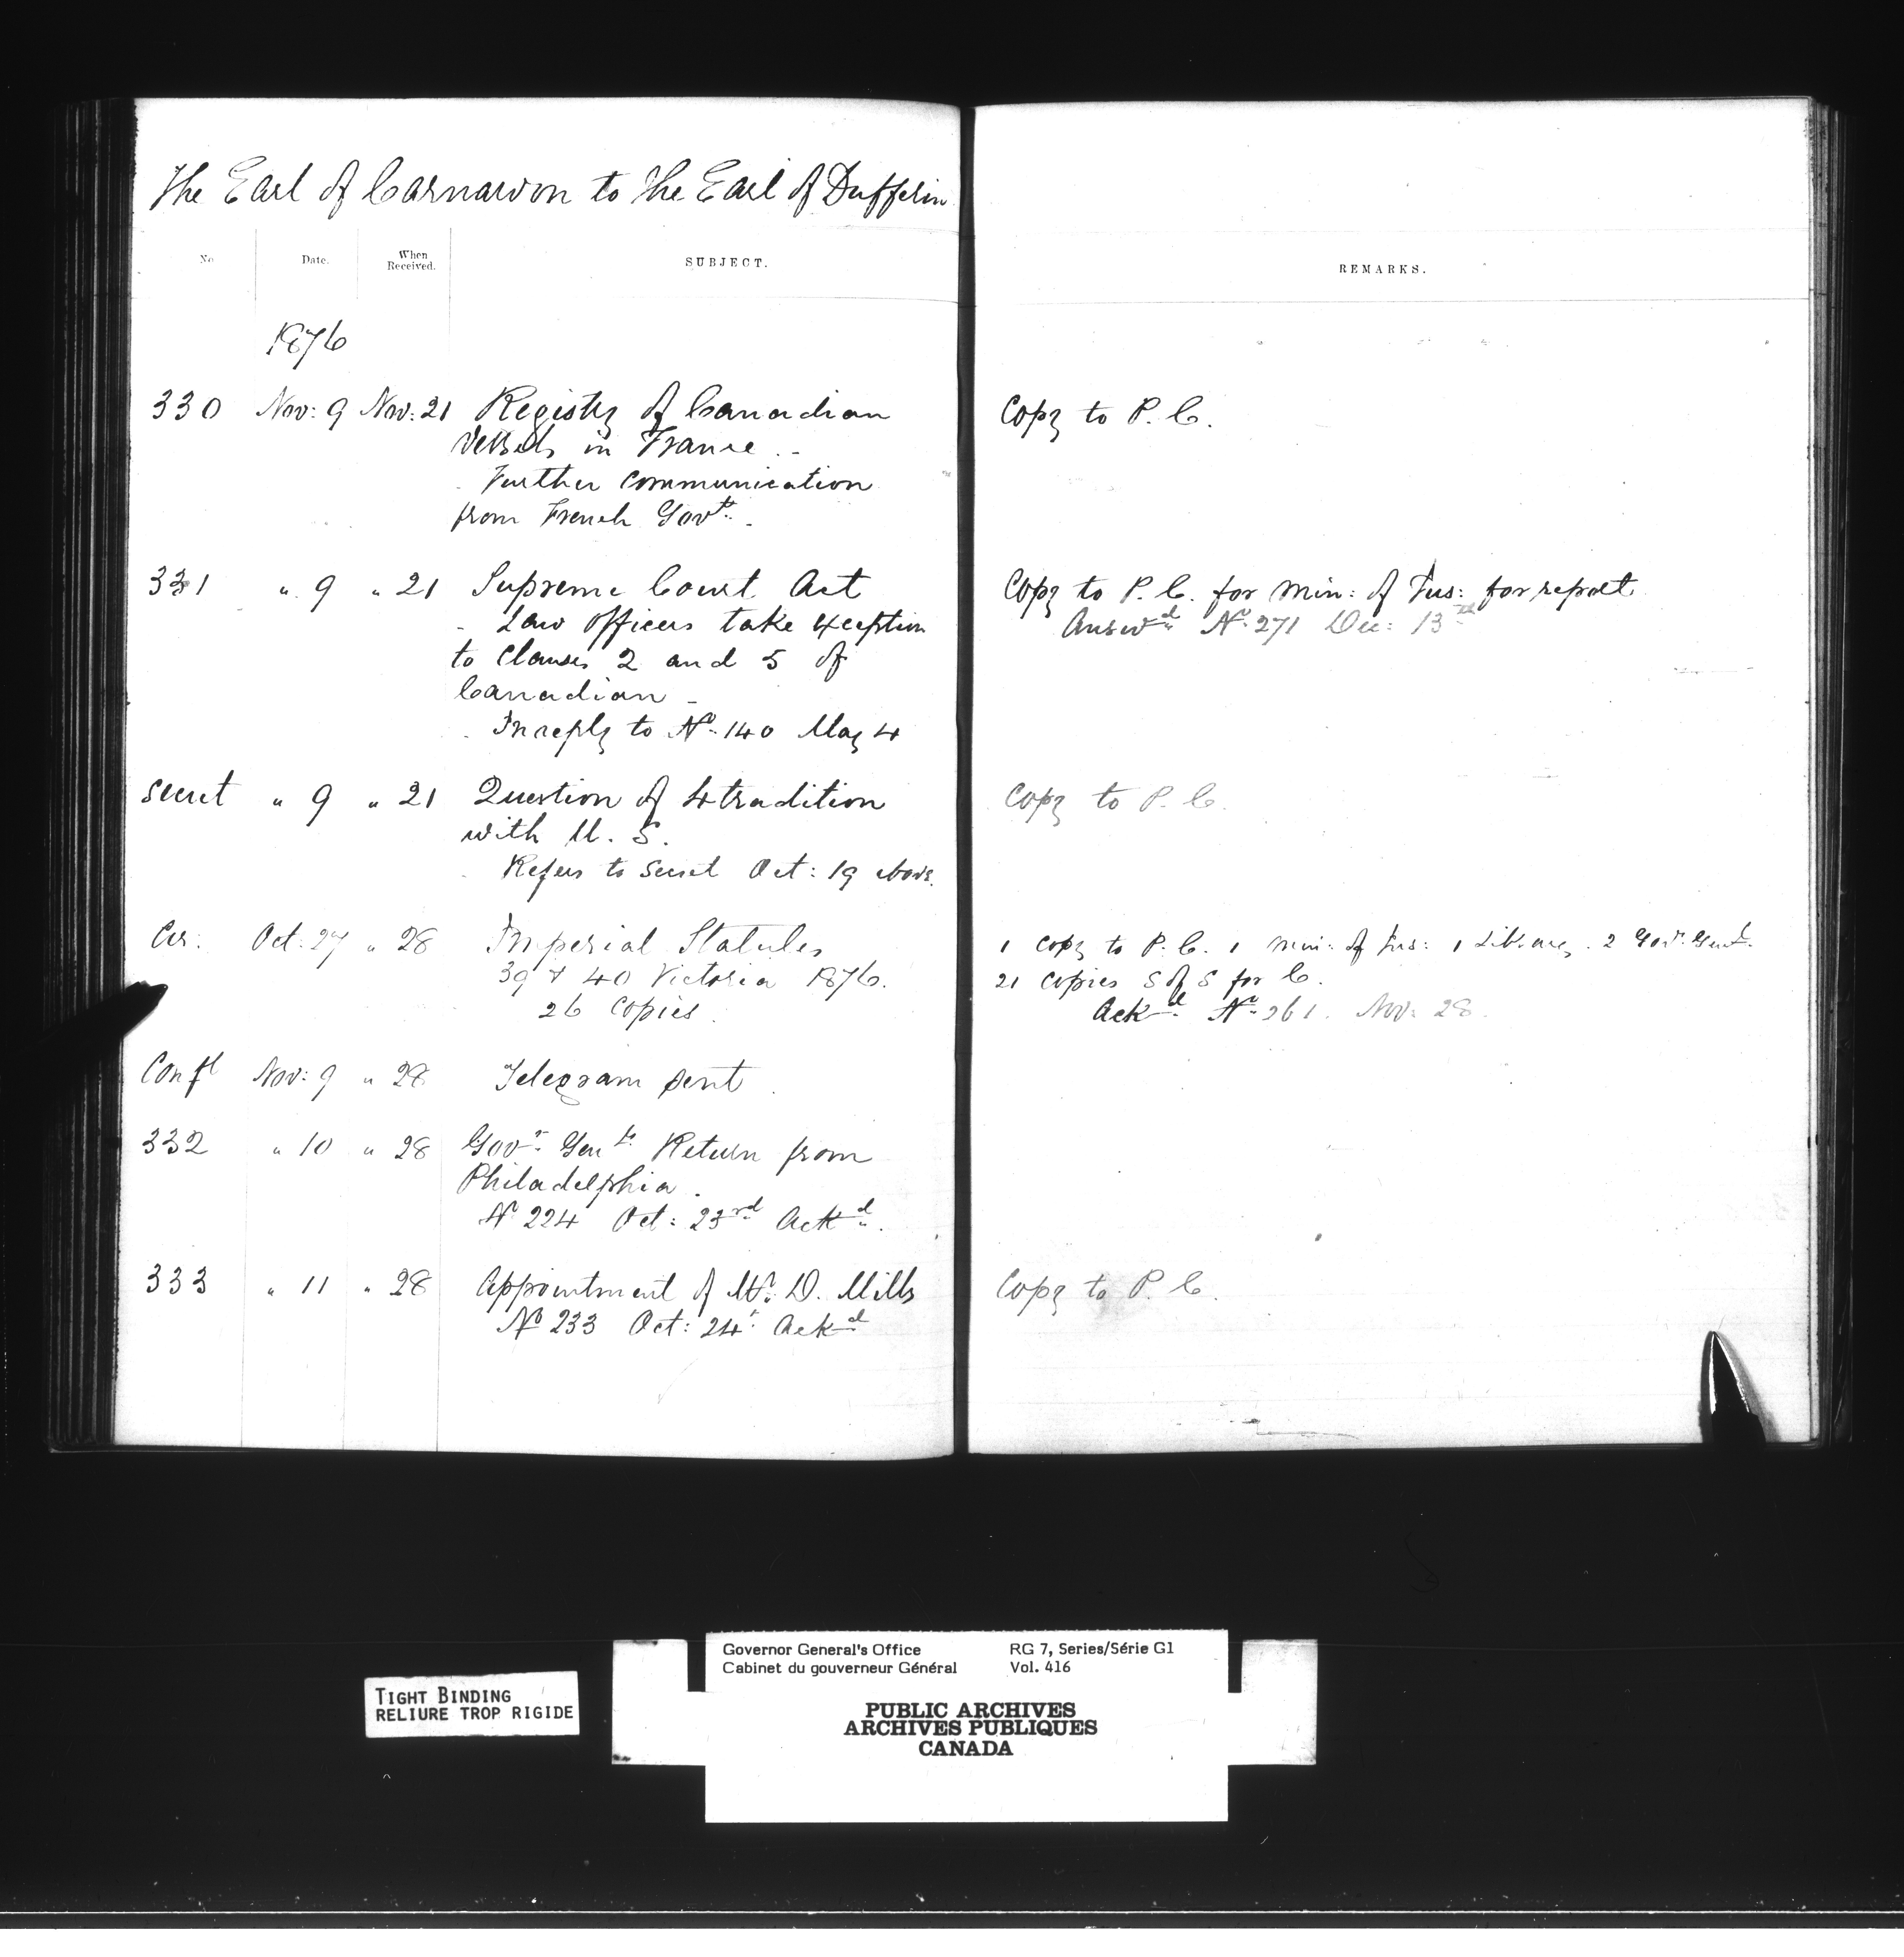 The Earl of Carnarvon to the Earl of Dufferin
No Date. When Received. SUBJECT. REMARKS.
1876
330 Nov: 9 Nov: 21 Registry of Canadian Copy to P. C.
Vessels in France. -
Further communication
from French Govt. -
331 " 9 " 21 Supreme Court Act Copy to P. C. for Min: of Jus: for report
- Law Officers take exception Answd No. 271 Dec: 13th
to Clauses 2 and 5 of
Canadian -
In reply to No. 140 May 4
Secret " 9 " 21 Question of Extradition Copy to P. C.
with U. S.
Refers to Secret Oct: 19 above.
Cir. Oct: 27 " 28 Imperial Statutes 1 Copy to P. C. 1 Min: of Jus: 1 Library. 2 Govr. Genl.
39 & 40 Victoria 1876. 21 Copies S of S for C.
26 Copies. Ackd No. 261. Nov: 28.
Confl Nov: 9 " 28 Telegram sent.
332 " 10 " 28 Govr. Genls. Return from
Philadelphia.
No 224 Oct: 23rd Ackd.
333 " 11 " 28 Appointment of Mr. D. Mills Copy to P. C.
No 233 Oct: 24. Ackd
Governor General's Office RG 7, Series/Série G1
Cabinet du gouverneur Général Vol. 416
TIGHT BINDING
RELIURE TROP RIGIDE
PUBLIC ARCHIVES
ARCHIVES PUBLIQUES
CANADA